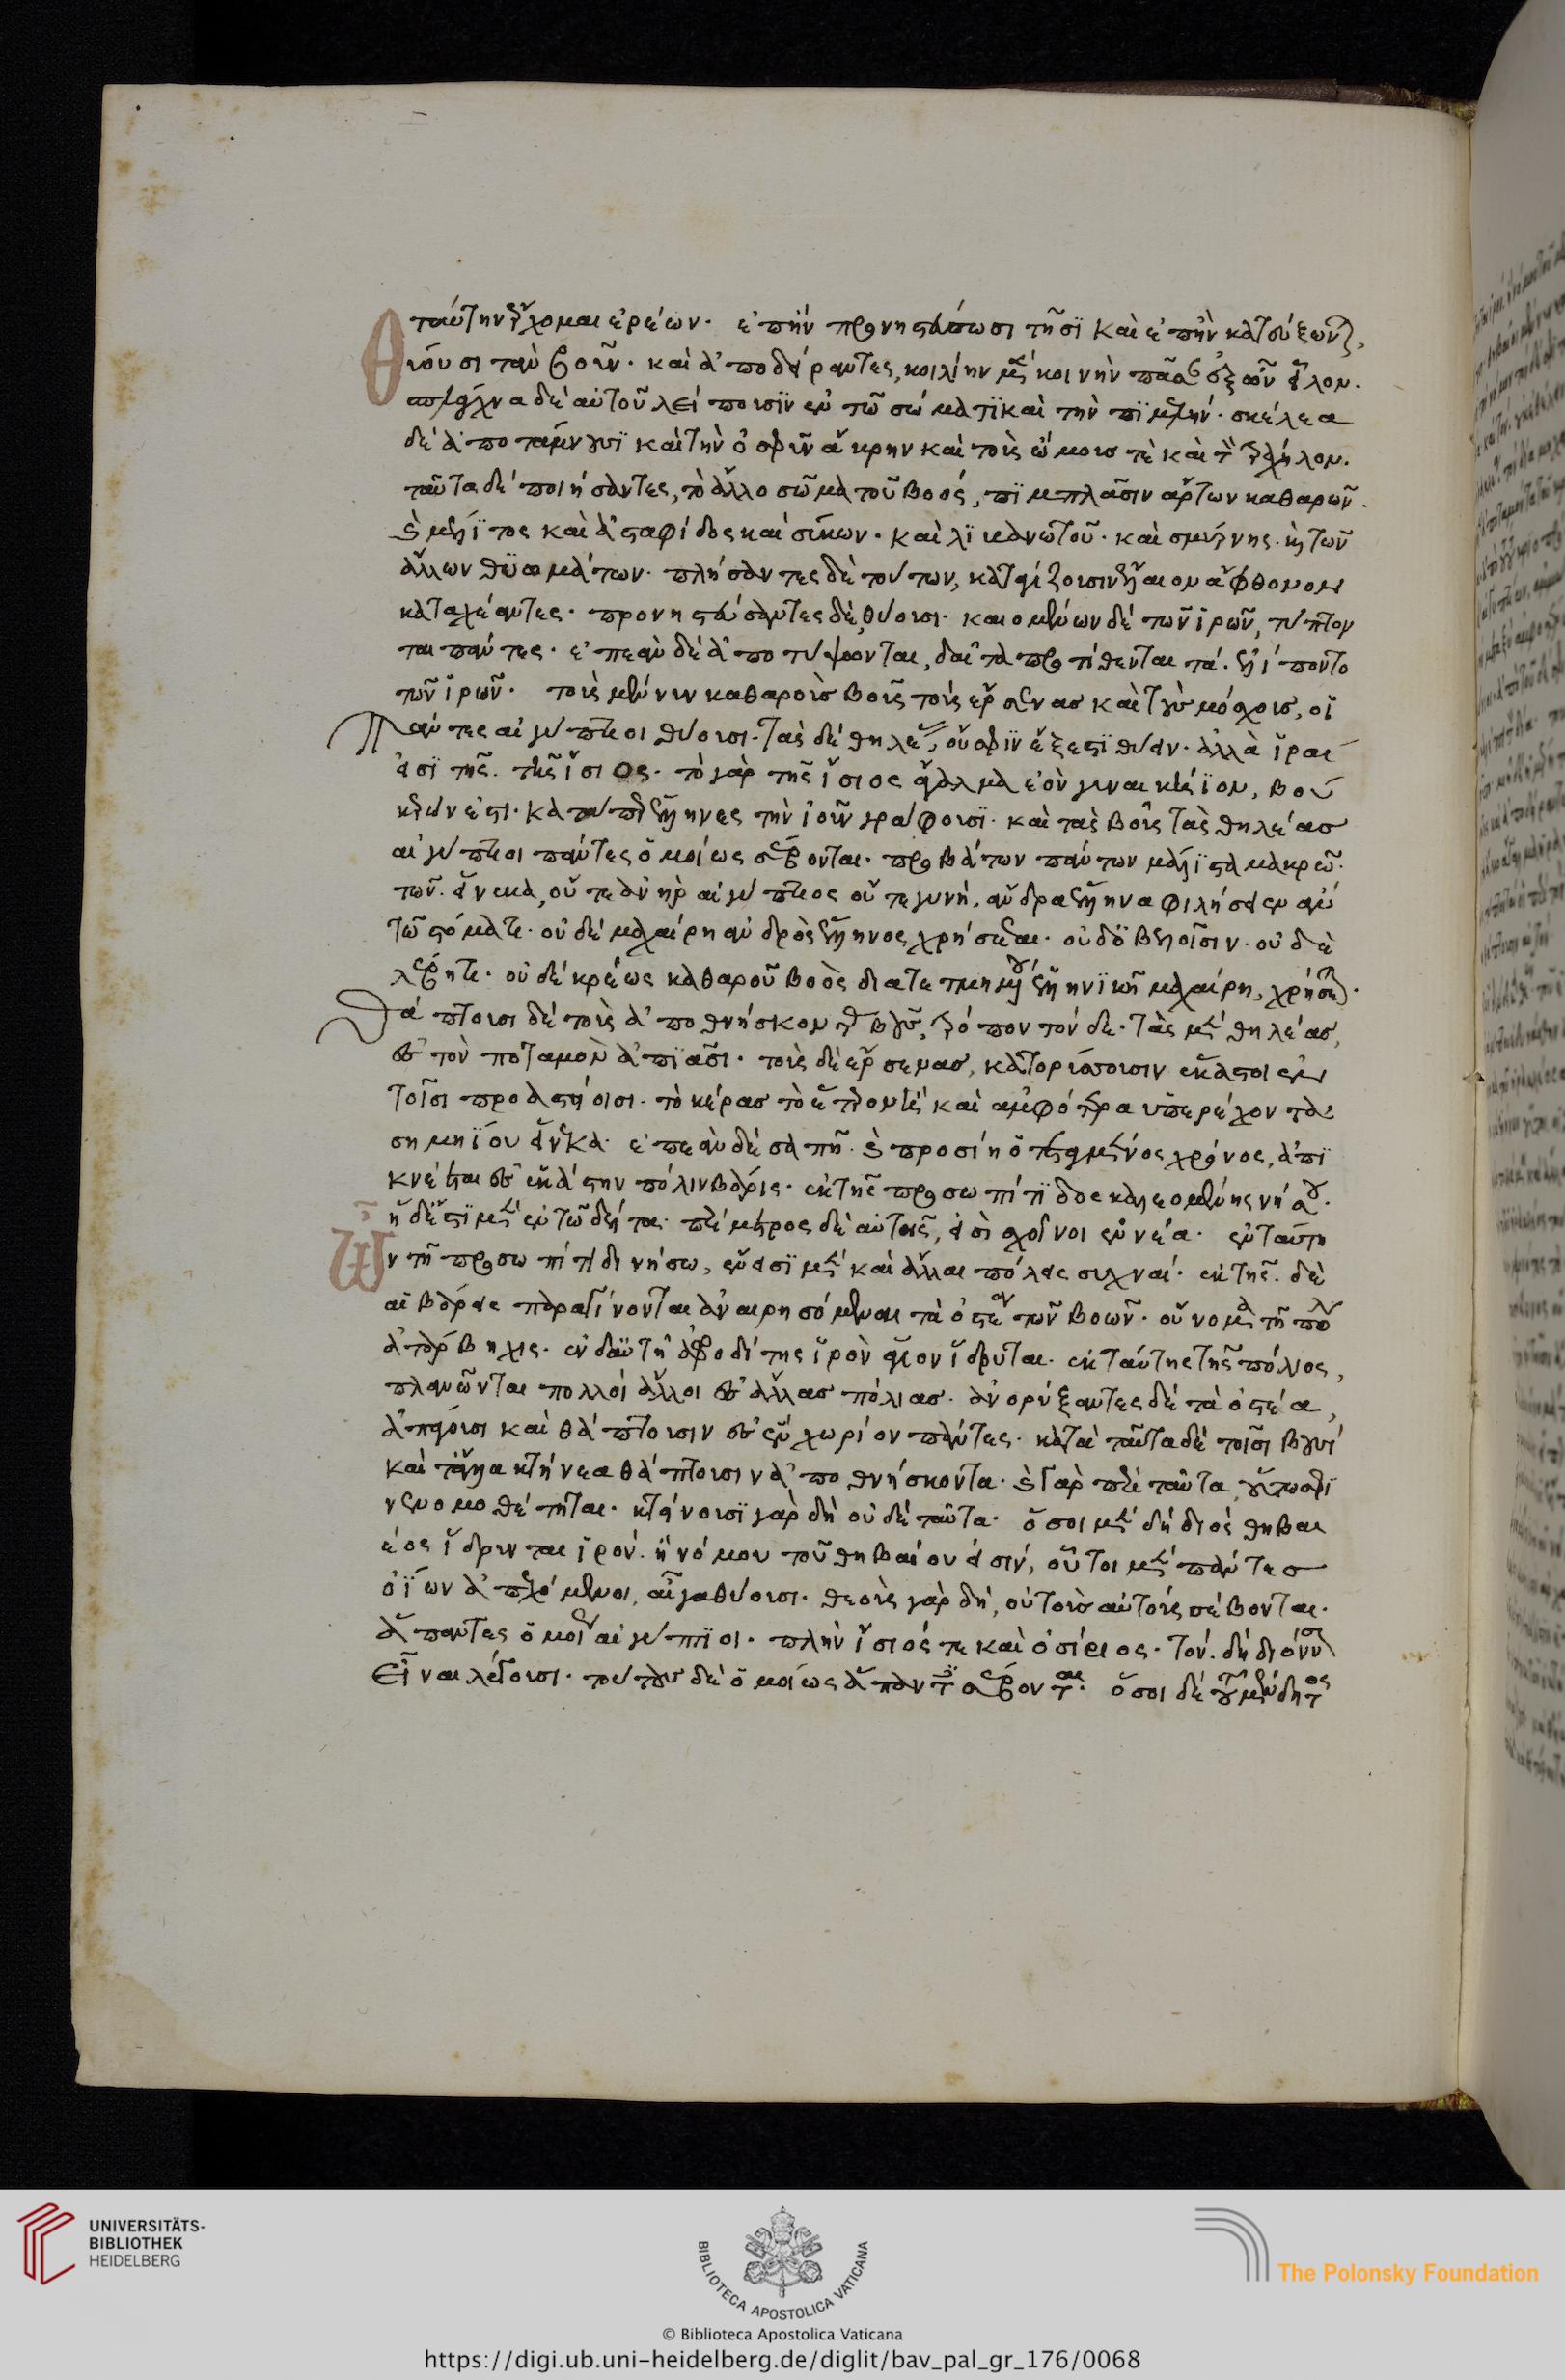 ταύτην ἔρχομαι ἐρέων. ἐπὴν προνηστεύσωσι τῆσϊ καὶ ἐπὴν κατεύξωντ,
θύουσι τὸν βοῦν. καὶ ἀποδείραντες, κοιλίην μὲν κεινὴν πᾶσαν ἐξ ὦν εἷλον.
σπλάγχνα δὲ αὐτοῦ λείπουσϊν ἐν τῶ σώματϊ καὶ τὴν πϊμελήν. σκέλεα
δὲ ἀποτάμνουσϊ καὶ τὴν ὀσφῦν ἄκρην καὶ τοὺς ὤμους τὲ καὶ τὸν τράχηλον.
ταῦτα δὲ ποιήσαντες, τὸ ἄλλο σῶμα τοῦ βοός, πϊμπλᾶσιν ἄρτων καθαρῶν.
καὶ μέλϊτος καὶ ἀσταφίδος καὶ σύκων. καὶ λϊβανωτοῦ. καὶ σμύρνης. καὶ τῶν
ἄλλων θϋωμάτων. πλήσαντες δὲ τούτων, καταγίζουσιν ἔλαιον ἄφθονον
καταχέαντες. προνηστεύσαντες δὲ, θύουσι. καιομένων δὲ τῶν ἱρῶν, τύπτον
ται πάντες. ἐπεὰν δὲ ἀποτύψωνται, δαῖτα προτίθενται τὰ ἐλίποντο
τῶν ἱρῶν. τοὺς μέν νυν καθαροὺς βοῦς τοὺς ἔρσενας καὶ τοὺς μόσχους, οἱ
πάντες αἰγύπτιοι θύουσι. τὰς δὲ θηλέας, οὔ σφϊν ἔξεστϊ θύειν. ἀλλὰ ἵραι
εἰσϊ τῆς. τῆς ἴσιος. τὸ γὰρ τῆς ἴσιος ἄγαλμα ἐὸν γυναικήϊον, βού
κερών ἐστι. κατάπερ ἕλληνες τὴν ἰοῦν γράφουσϊ. καὶ τὰς βοῦς τὰς θηλέας
αἰγύπτιοι πάντες ὁμοίως σέβονται. προβάτων πάντων μάλϊστα μακρῶ.
τῶν. εἵνεκα, οὔτε ἀνὴρ αἰγύπτιος οὔτε γυνή, ἄνδρα ἕλληνα φιλήσειεν ἂν
τῶ στόματι. οὐδὲ μαχαίρη ἀνδρὸς ἕλληνος χρήσεται. οὐδ ὀβελοῖσιν. οὐδὲ
λέβητι. οὐδὲ κρέως καθαροῦ βοὸς διατετμημένου ἑλληνϊκῆ μαχαίρη, γεύσεται.
θάπτουσι δὲ τοὺς ἀποθνήσκοντας βοῦς, τρόπον τόνδε. τὰς μὲν θηλέας,
ἐς τὸν ποταμὸν ἀπϊᾶσι. τοὺς δὲ ἔρσενας, κατορύσσουσιν ἕκαστοι ἐν
τοῖσι προαστείοισι. τὸ κέρας τὸ ἕτερον τὲ καὶ ἀμφότερα ὑπερέχοντα
σημηΐου εἵνεκα. ἐπεὰν δὲ σαπῆ. καὶ προσίη ὁ τεταγμένος χρόνος, ἀπϊ
κνέεται ἐς ἑκάστην πόλιν βάρις. ἐκ τῆς προσωπίτϊδος καλεομένης νήσου.
ἡ δ ἔστϊ μὲν ἐν τῶ δέλτα. περίμετρος δὲ αὐτῆς, εἰσὶ σχοῖνοι ἐννέα. ἐν ταύτη
ὦν τῆ προσωπίτϊδι νήσω, ἔνεισϊ μὲν καὶ ἄλλαι πόλεις συχναί. ἐκ τῆς. δὲ
αἱ βάρεις παραγίνονται ἀναιρησόμεναι τὰ ὀστέα τῶν βοῶν. οὔνομα τῆ πόλι
ἀτάρβηχις. ἐν δ αὐτῆ ἀφροδίτης ἱρὸν ἅγιον ἵδρυται. ἐκ ταύτης τῆς πόλιος,
πλανῶνται πολλοὶ ἄλλοι ἐς ἄλλας πόλιας. ἀνορύξαντες δὲ τὰ ὀστέα,
ἀπάγουσι καὶ θάπτουσιν ἐς ἕνα χωρίον πάντες. κατὰ ταῦτα δὲ τοῖσι βουσὶ
καὶ τἄλλα κτήνεα θάπτουσιν ἀποθνήσκοντα. καὶ γὰρ περὶ ταῦτα οὕτω σφϊ
νενομοθέτηται. κτείνουσϊ γὰρ δὴ οὐδὲ ταῦτα. ὅσοι μὲν δὴ διὸς θηβαι
έος ἵδρυνται ἱρόν. ἢ νόμου τοῦ θηβαίου εἰσίν, οὗτοι μὲν πάντες
ὀΐων ἀπεχόμενοι, αἶγα θύουσι. θεοὺς γὰρ δὴ, οὐ τοὺς αὐτοὺς σέβονται.
ἅπαντες ὁμοίως αἰγύπτϊοι. πλὴν ἴσιός τε καὶ ὀσίριος. τὸν. δὴ διόνυσον
εἶναι λέγουσι. τούτους δὲ ὁμοίως ἅπαντες σέβονται. ὅσοι δὲ τοῦ μένδητος
UNIVERSITÄTS-
BIBLIOTHEK
HEIDELBERG
BIBLIOTECA APOSTOLICA VATICANA
The Polonsky Foundation
© Biblioteca Apostolica Vaticana
https://digi.ub.uni-heidelberg.de/diglit/bav_pal_gr_176/0068